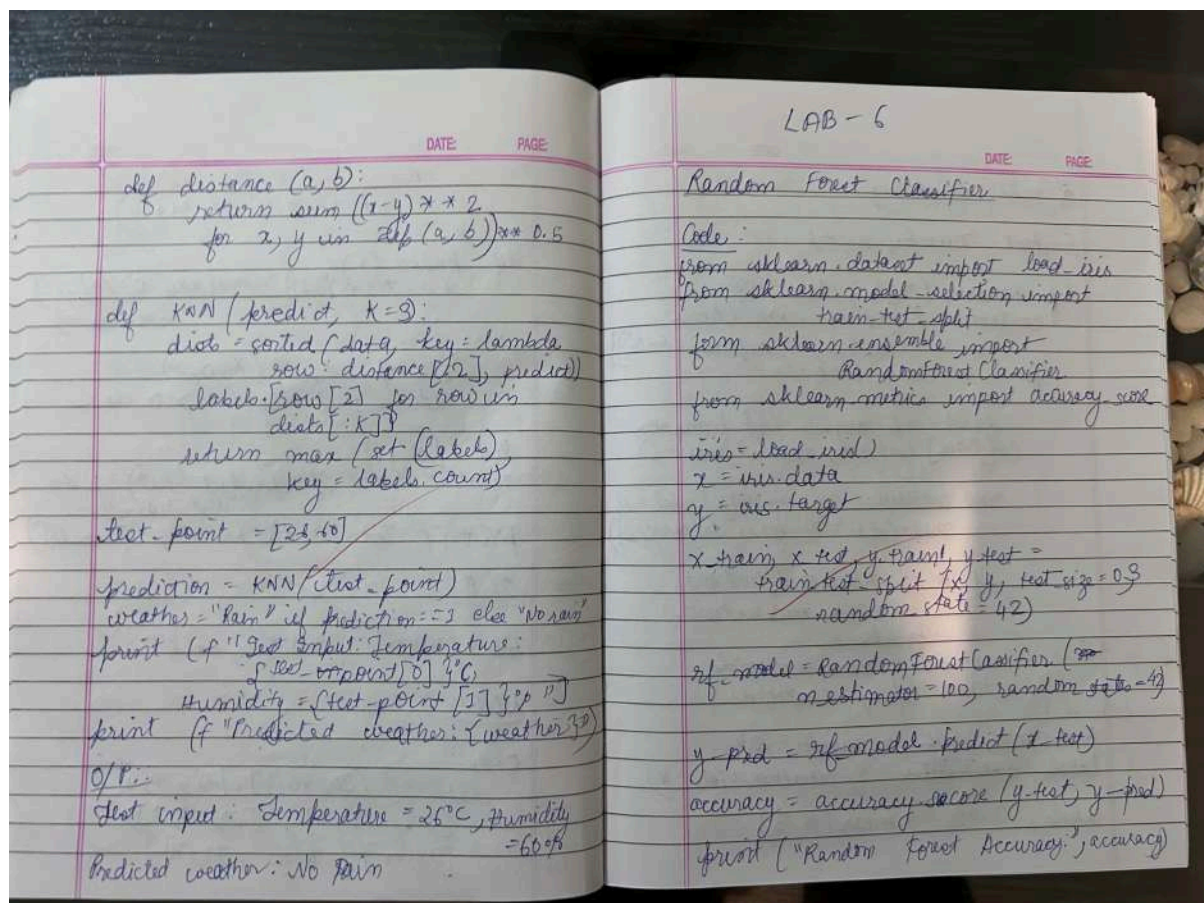 DATE: PAGE:
def distance (a, b):
return sum ((x-y) ** 2
for x, y in zip (a, b)) ** 0.5
def KNN (predict, K=3):
dists = sorted (data, key = lambda
row: distance [:2], predict))
labels. [row [2] for row in
dists [:K]]
return max (set (labels)
key = labels. count)
test_point = [26, 60]
prediction = KNN (test_point)
weather = "Rain" if prediction == 1 else "No rain"
print (f "Test Input: Temperature:
{test_point [0] }°C,
Humidity = {test-point [1] }% ")
print (f "Predicted weather: {weather }")
O/P:
Test input: Temperature = 26°C, Humidity
= 60%
Predicted weather: No Rain
LAB - 6
DATE: PAGE:
Random Forest Classifier
Code:
from sklearn. dataset import load_iris
from sklearn. model_selection import
train_test_split
form sklearn. ensemble import
RandomForest Classifier
from sklearn. metrics import accuracy_score
iris = load_iris)
x = iris. data
y = iris. target
x_train, x test, y_train, y_test =
train test_split (x, y, test_size = 0.3
random_state = 42)
rf_model = RandomForestClassifier (
n estimator = 100, random state = 42)
y_pred = rf_model. predict (x_test)
accuracy = accuracy. score (y-test, y-pred)
print ("Random Forest Accuracy:", accuracy)